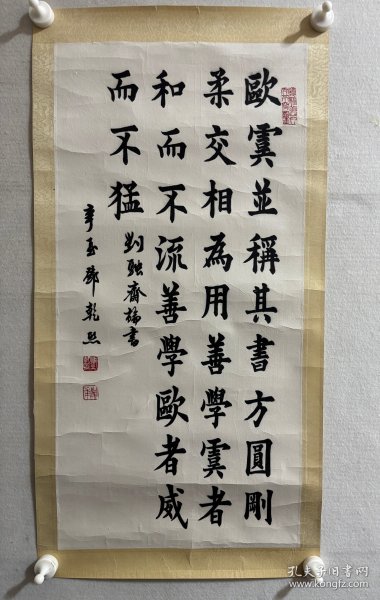 歐虞並稱其書方圓剛
柔交相為用善學虞者
和而不流善學歐者威
而不猛
劉融齋論書
辛酉鄧乾熙
孔夫子旧书网
www.kongfz.com